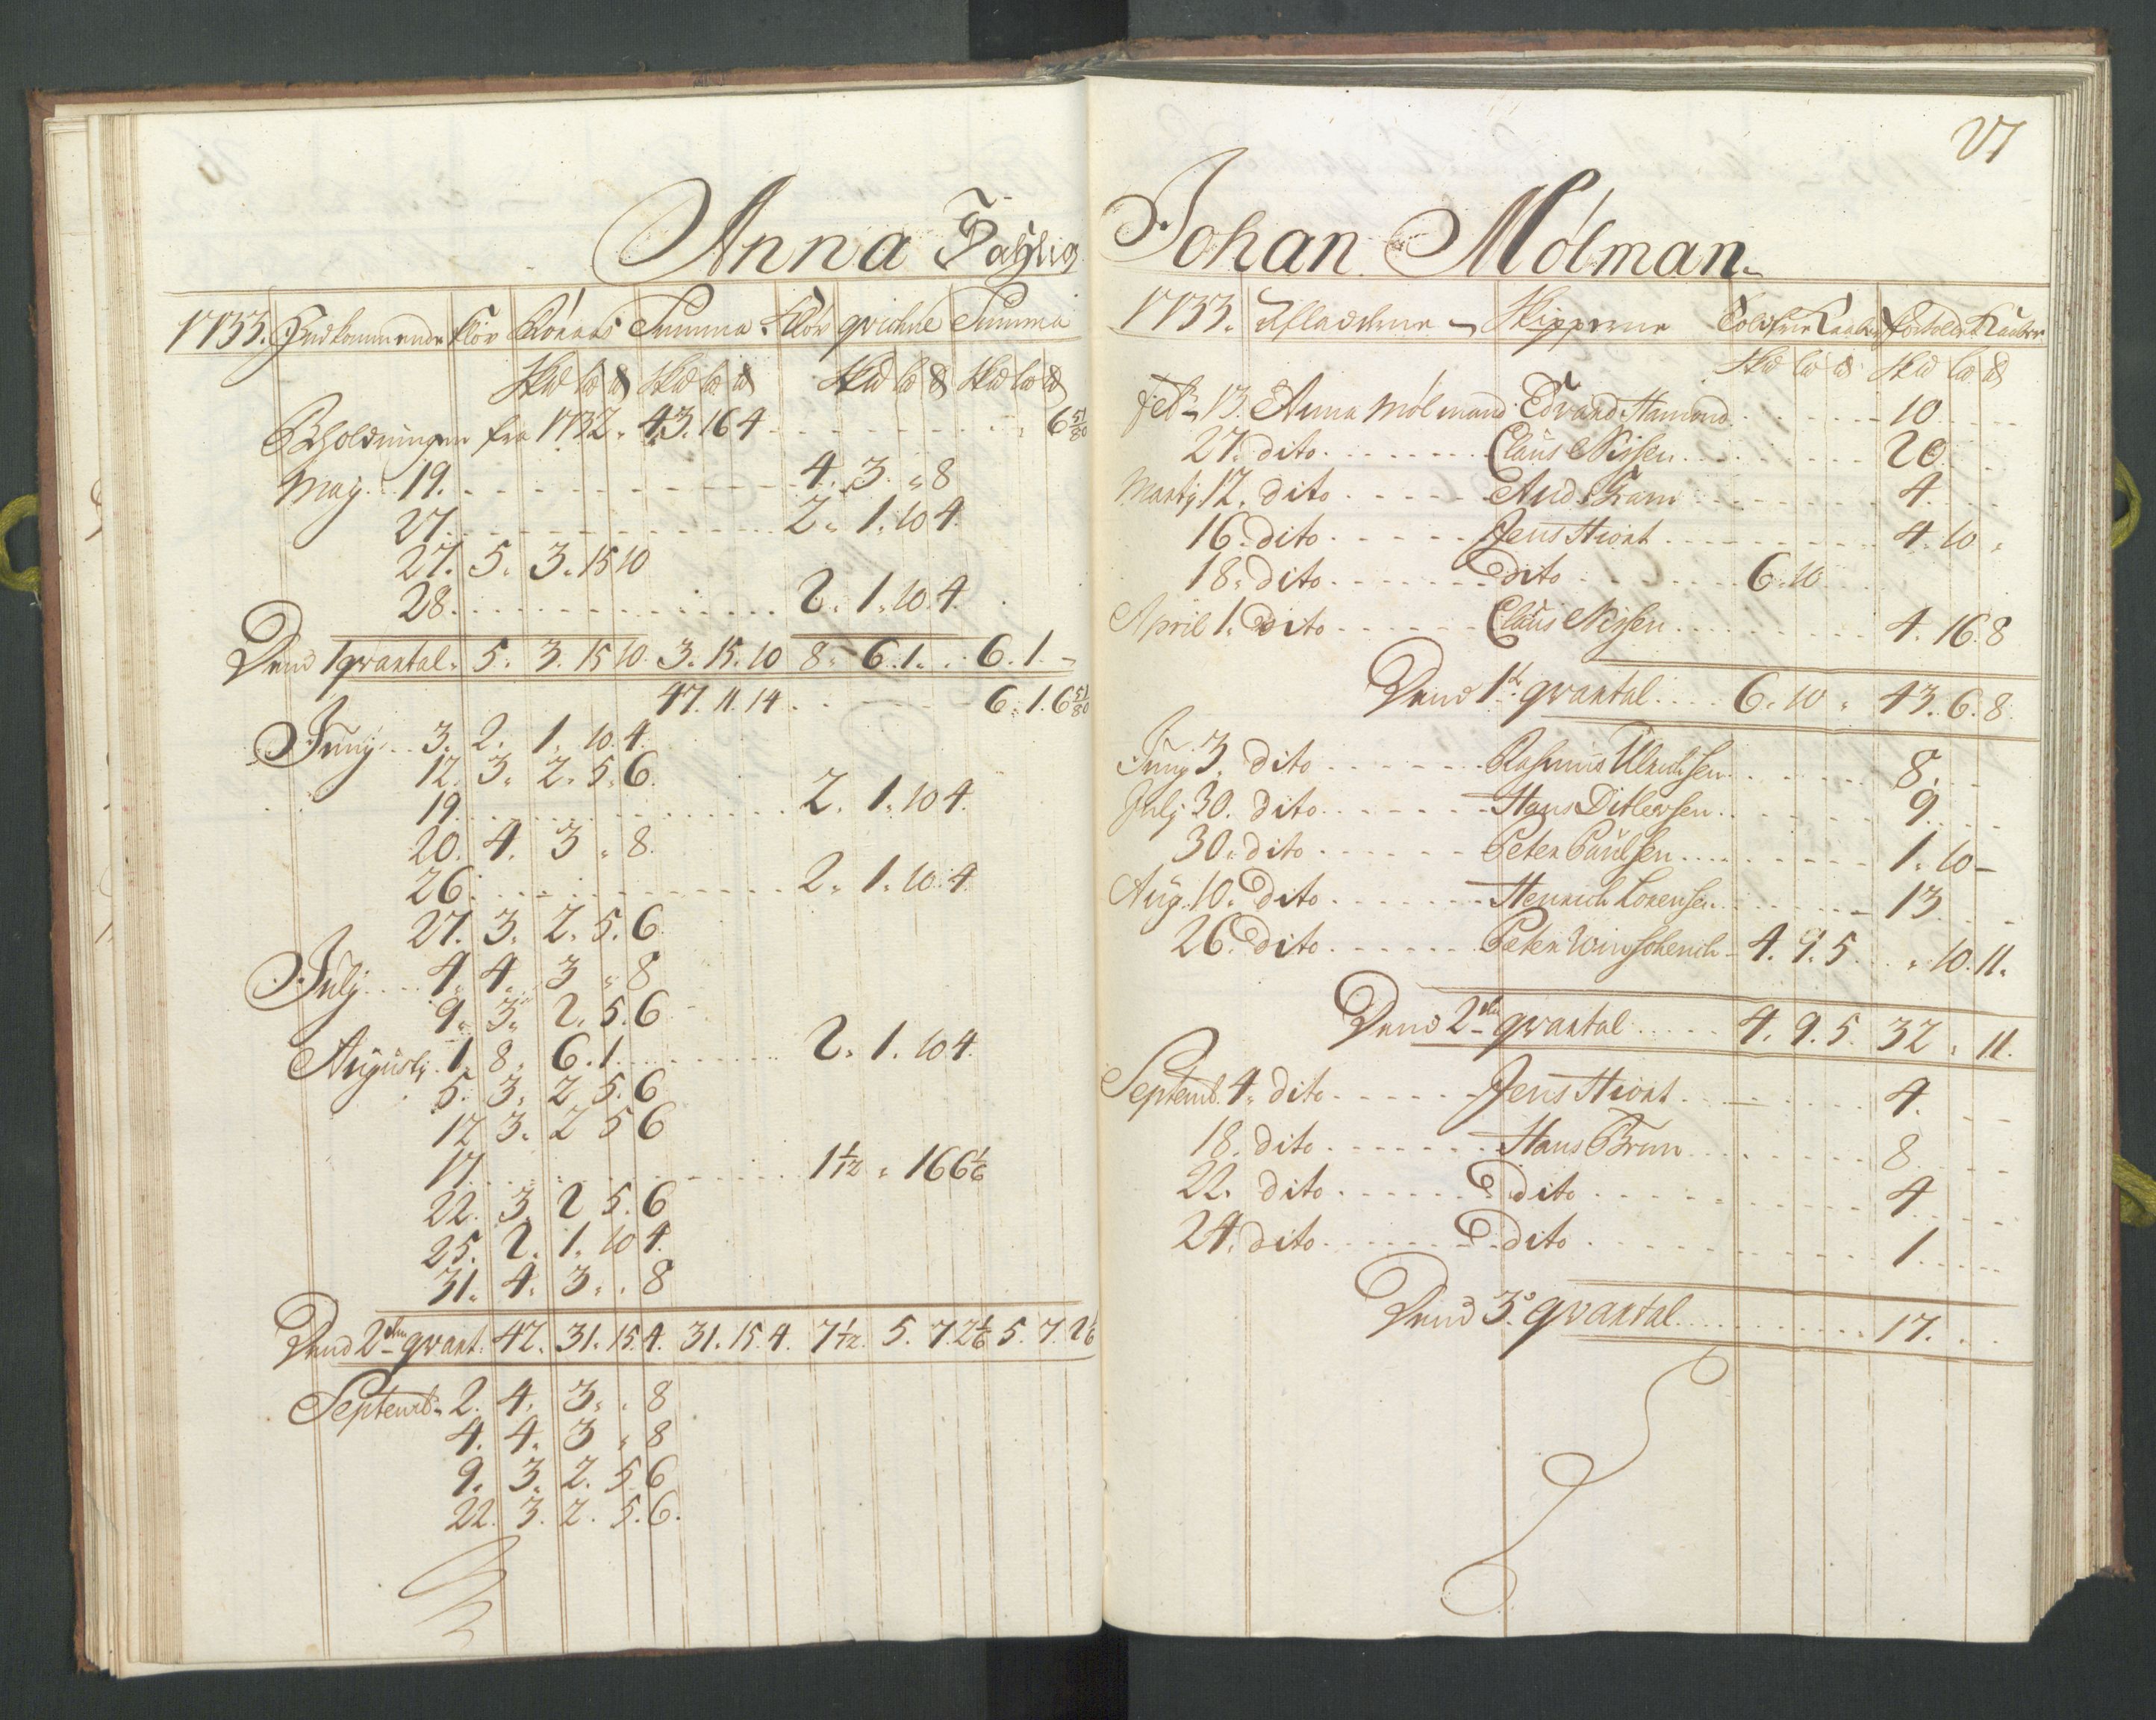 Anna Sahlig
1733. Indkommende Klöv Röraas Summa Klöv qvickne Summa
Skd Ld ℔ Skd Ld ℔ Skd Ld ℔ Skd Ld ℔
Beholdningen fra 1732. 43. 16 4 6 51/80
Maj. 19. 4. 3. " 8
27. 2. 1. 10 4.
27. 5. 3. 15 10
28. 2. 1. 10. 4.
Dend 1 qvartal. 5. 3. 15 10. 3. 15. 10 8. 6. 1. 6. 1.
47. 11. 14. 6. 1. 6 51/80
Junij 3. 2. 1. 10. 4.
12. 3. 2. 5. 6.
19. 2. 1. 10 4.
20. 4. 3 " 8.
26. 2. 1. 10. 4
27. 3. 2. 5. 6.
Julij 4. 4. 3 " 8
9. 3. 2. 5. 6
Augustij. 1. 8. 6. 1. 2. 1. 10 4.
5. 3. 2. 5. 6
12 3. 2 5 6
17. 1 1/12 " 16 6 1/6
22. 3. 2 5. 6
25. 2. 1. 10 4.
31. 4. 3. . 8
Dend 2den qvart. 42. 31. 15. 4. 31. 15. 4. 7 1/12. 5. 7. 2 1/6 5. 7. 2 1/6
Septemb. 2. 4. 3. . 8
4. 4. 3 " 8
9. 3. 2. 5 6
22. 3. 2. 5. 6.
27
Johan Mólman.
1733. Afladerne Skipperne Toldfrie Kaaber Fortoldede Kaaber
Skd Ld ℔ Skd Ld ℔
feb. 13. Anna Mólmand. Edvard Hamond 10
27. dito Claus Nissen 20
Martij 12. dito And: Fram 4.
16. dito Jens Hiort 4. 10 "
18. dito Dito 6. 10
April 1. Dito Claus Nissen 4. 16. 8
Dend 1te qvartal 6. 10 " 43. 6. 8.
Junij 3. dito Rasmus Ulrichsen 8.
Julj 30. dito Hans Ditlevsen 9
30. dito Peter Paulsen 1. 10
Aug. 10. Dito Henrich Lorensen 13
26. Dito 4. 9. 5 " 10. 11.
Dend 2den qvartal 4. 9. 5. 32 " 11.
Septemb. 4. dito Jens Hiort 4.
18. dito Hans Brun 8
22. dito Dito 4
24. dito Dito 1
Dend 3e qvartal 17.